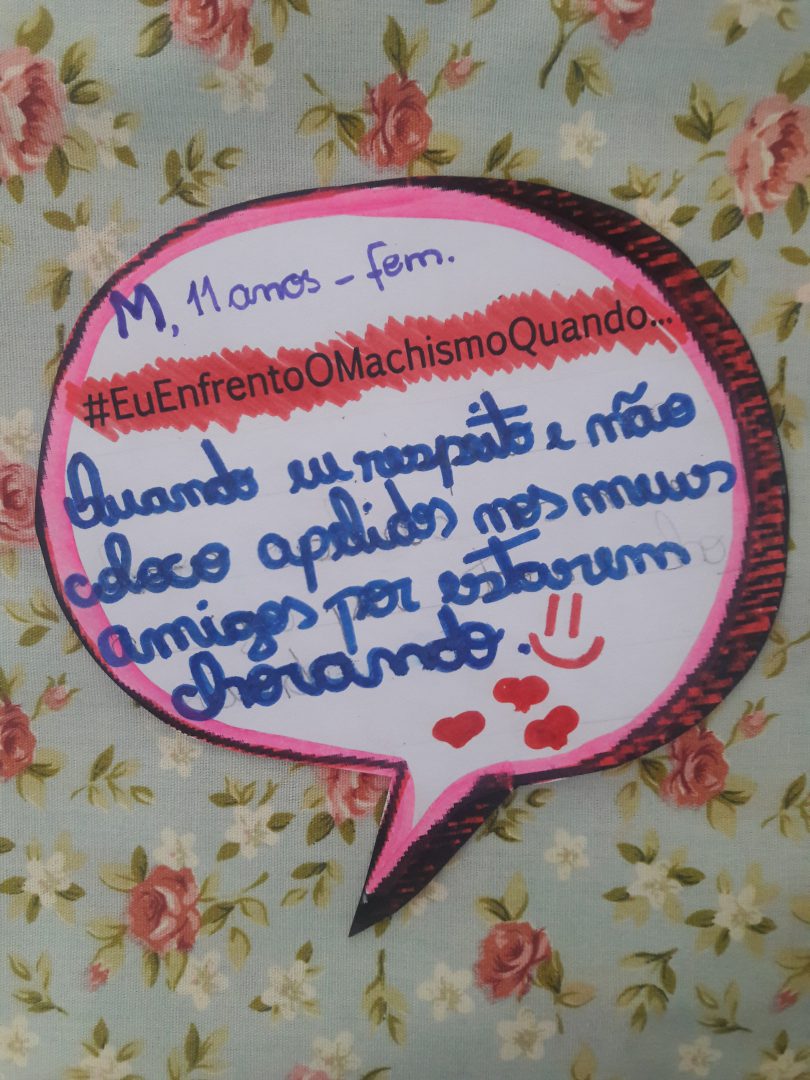 M, 11 anos - fem.
#EuEnfrentoOMachismoQuando...
Quando eu respeito e não
coloco apelidos nos meus
amigos por estarem
chorando.